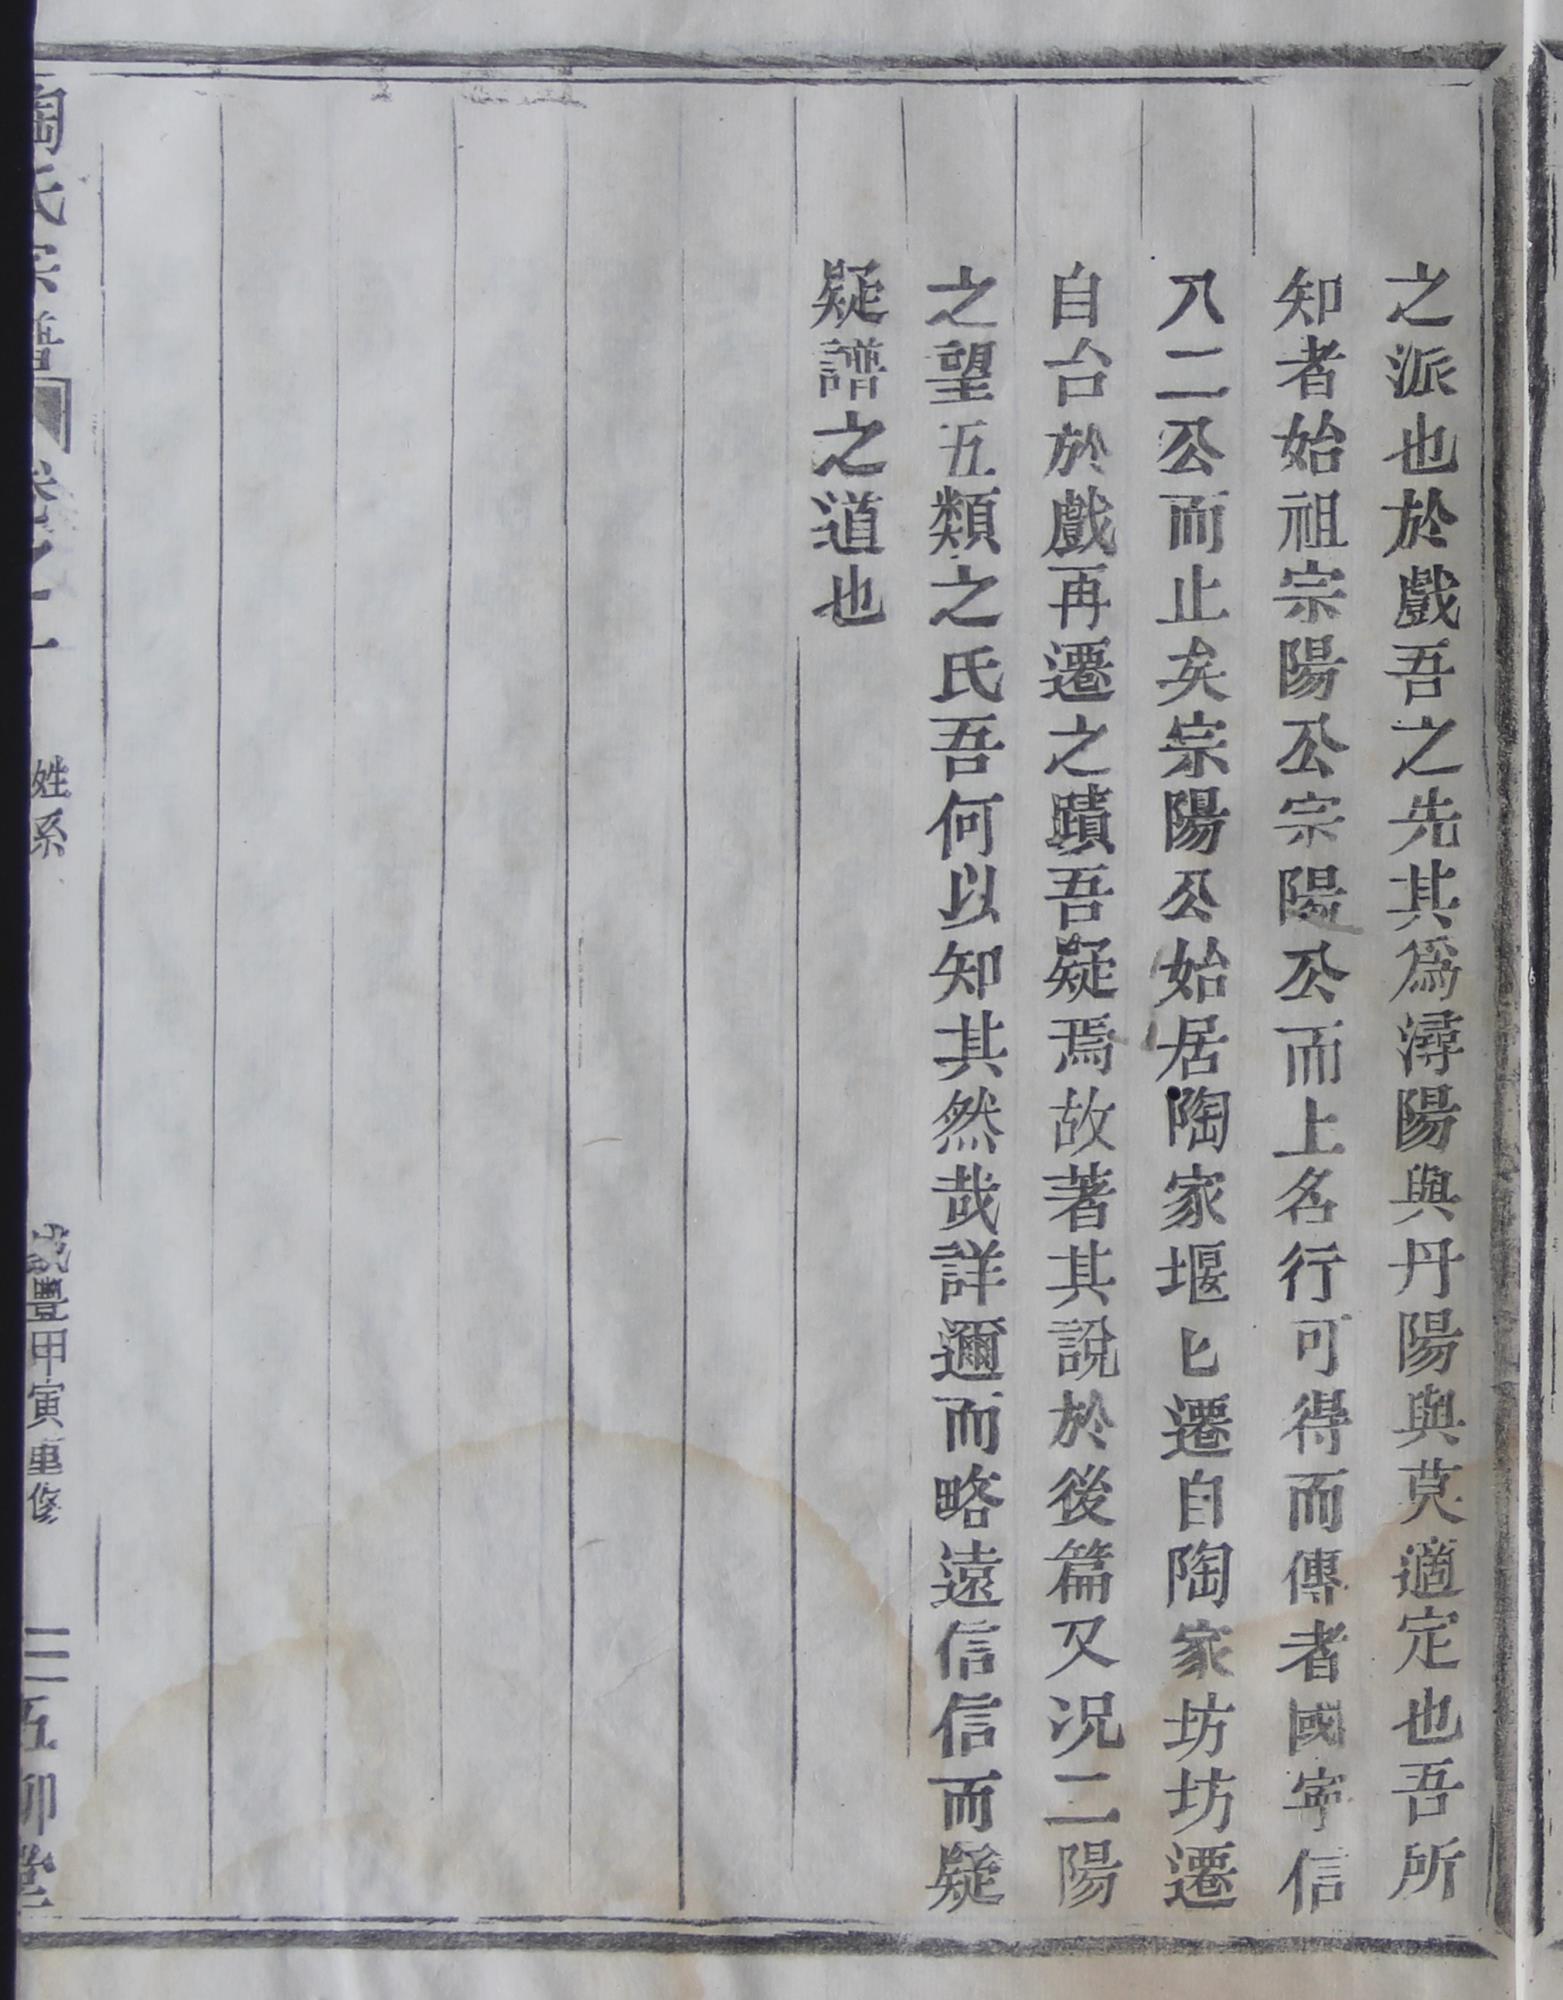 之派也於戲吾之先其爲潯陽與丹陽與莫適定也吾所
知者始祖宗陽公宗陽公而上名行可得而傳者國寧信
八二公而止矣宗陽公始居陶家堰匕遷自陶家坊坊遷
自台於戲再遷之蹟吾疑焉故著其說於後篇又況二陽
之望五類之氏吾何以知其然哉詳邇而略遠信信而疑
疑譜之道也
陶氏宗譜 卷之一 姓系 咸豐甲寅重修 三 五柳堂